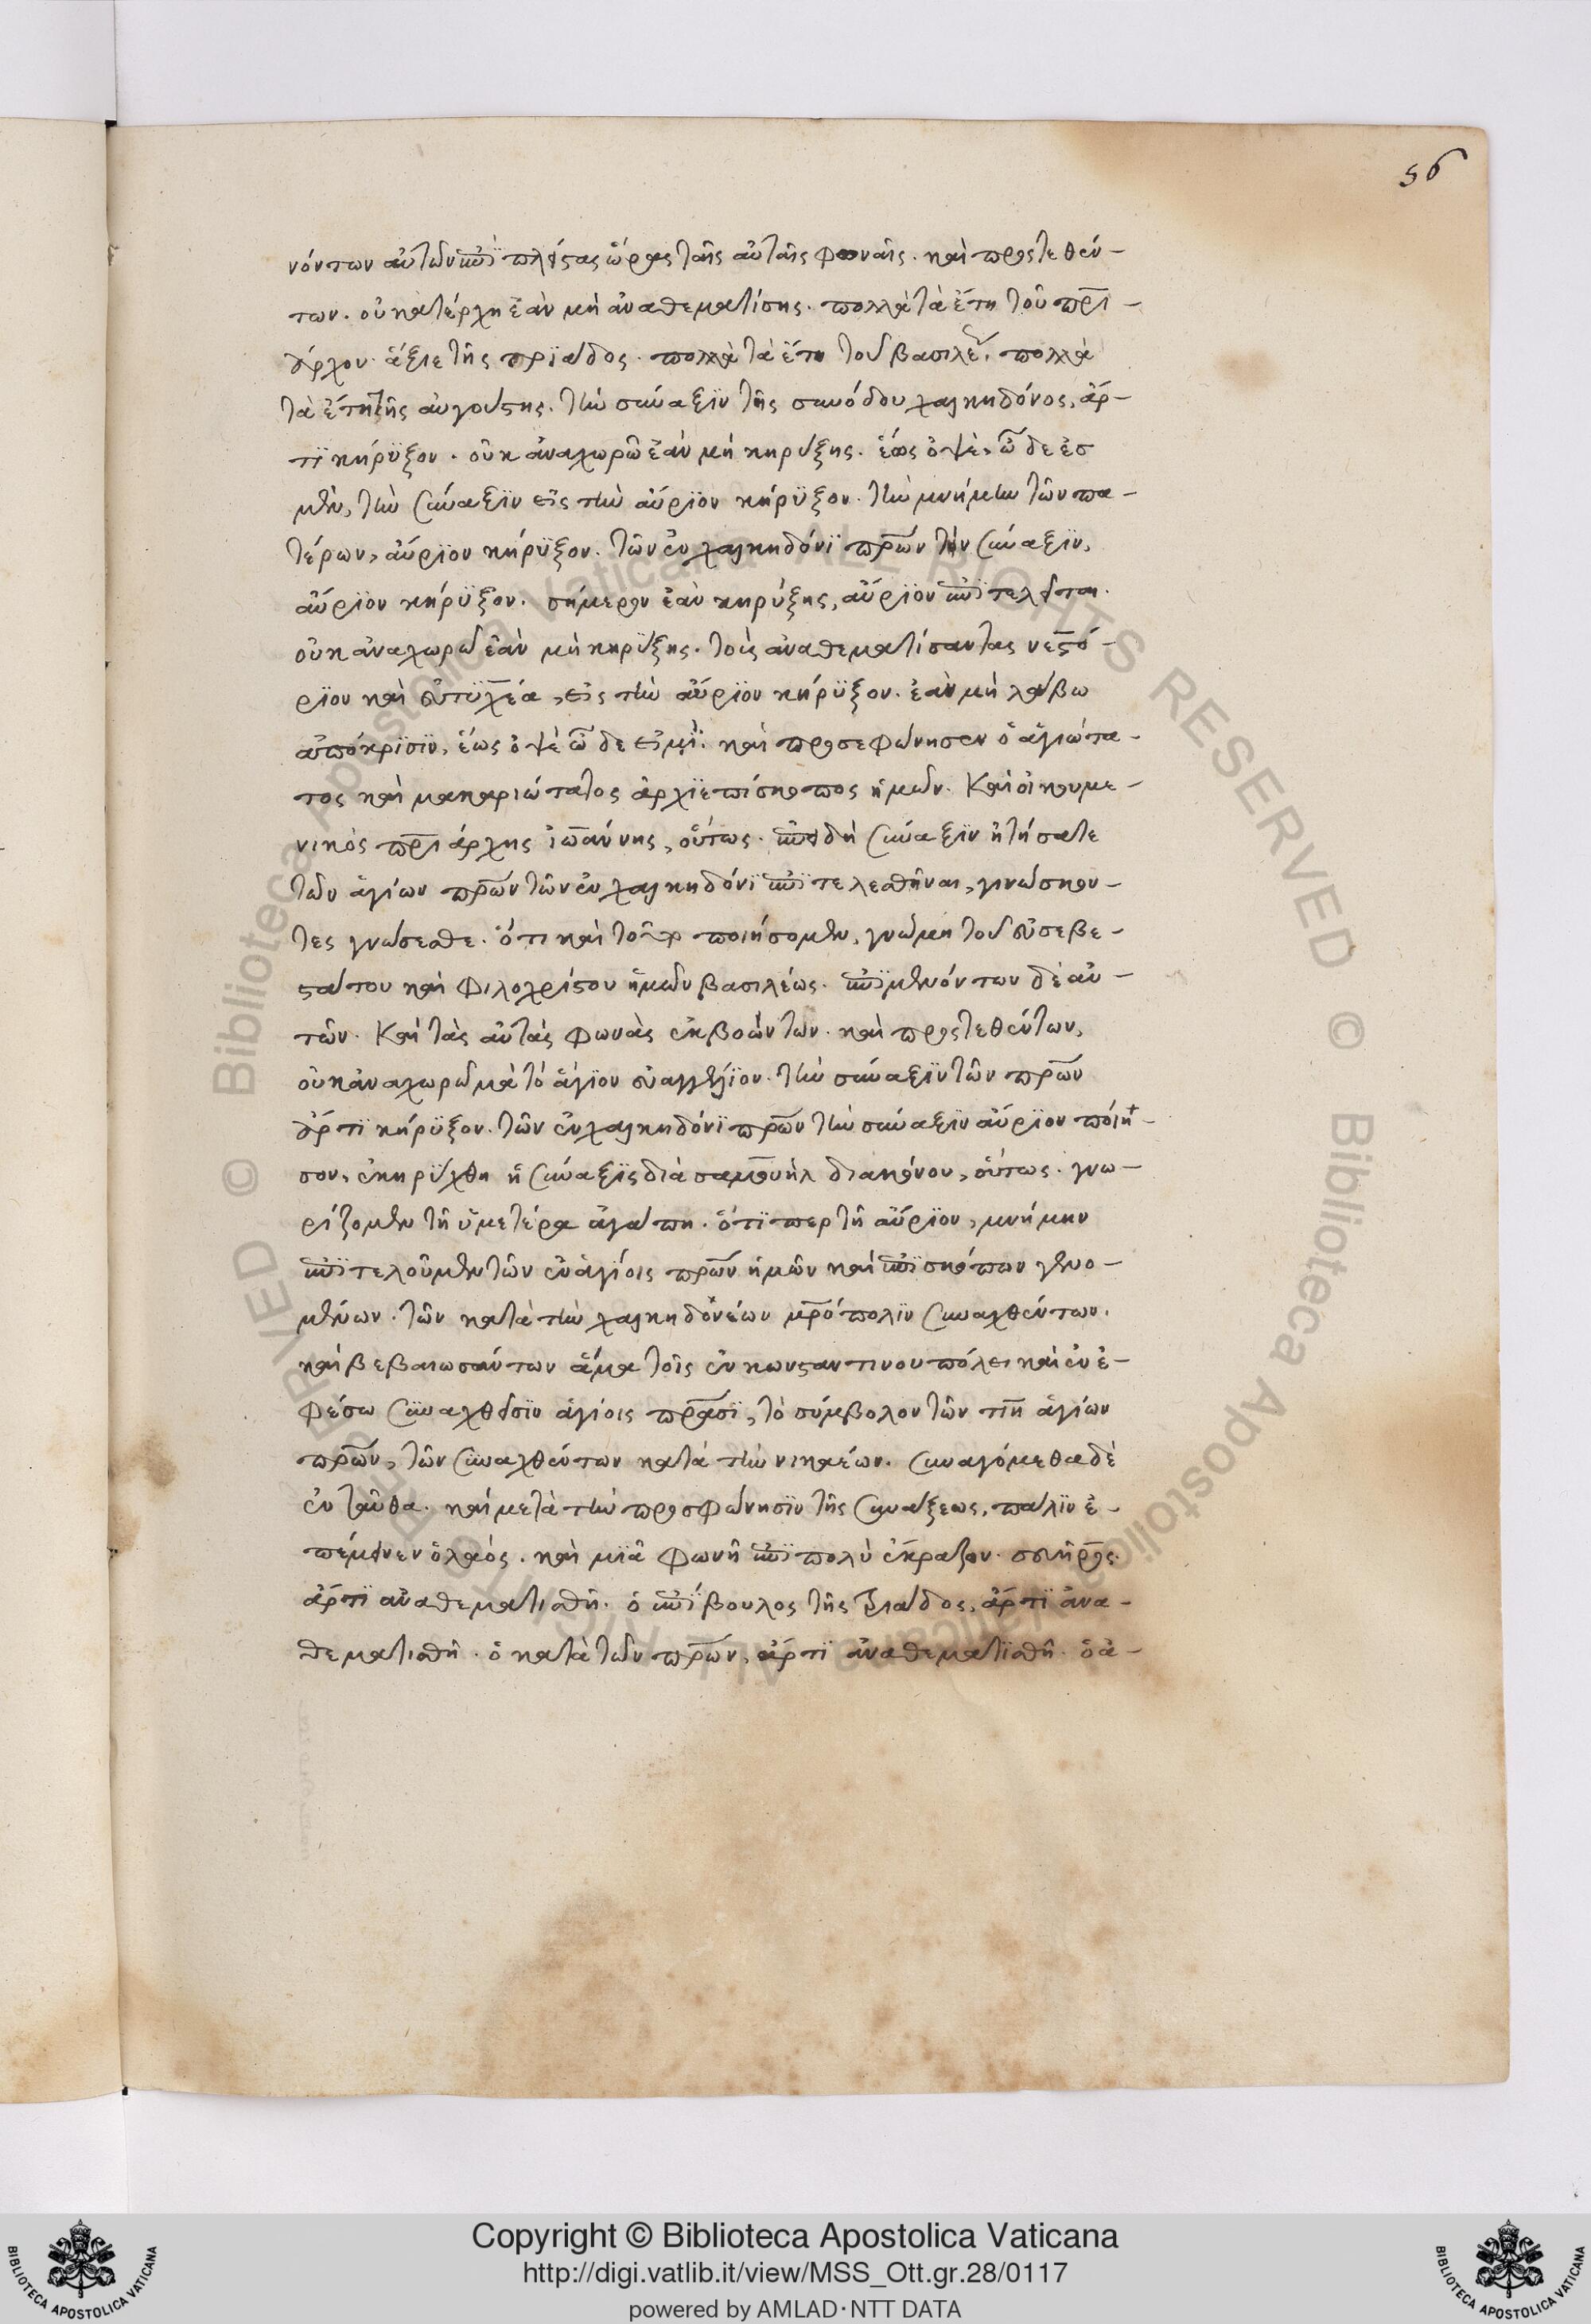 56
νόντων αὐτῶν ἐπϊ πλείστας ὥρας ταῖς αὐταῖς φωναῖς. καὶ προστεθέν-
των. οὐ κατέρχη ἐὰν μὴ ἀναθεματίσης. πολλὰ τὰ ἔτη τοῦ πρι-
άρχου. ἄξιε τῆς τρϊάδος. πολλὰ τὰ ἔτη τοῦ βασιλέως. πολλὰ
τὰ ἔτη τῆς αὐγούστης. τὴν σύναξϊν τῆς συνόδου χαλκηδόνος, ἄρ-
τϊ κήρϋξον. οὐκ ἀναχωρῶ ἐὰν μὴ κηρύξης. ἕως ὀψὲ, ὧδε ἐσ
μὲν, τὴν σύναξϊν εἰς τὴν αὔρϊον κήρϋξον. τὴν μνήμην τῶν πα-
τέρων, αὔρϊον κήρϋξον. τῶν ἐν χαλκηδόνϊ πρων τὴν σύναξϊν,
αὔρϊον κήρϋξον. σήμερον ἐὰν κηρύξης, αὔρϊον ἐπϊτελεῖται.
οὐκ ἀναχωρῶ ἐὰν μὴ κηρύξης. τοὺς ἀναθεματίσαντας νεστό-
ρϊον καὶ εὐτϋχέα, εἰς τὴν αὔρϊον κήρϋξον. ἐὰν μὴ λάβω
ἀπόκρϊσϊν, ἕως ὀψὲ ὧδε εἰμϊ. καὶ προσεφώνησεν ὁ ἁγιώτα-
τος καὶ μακαριώτατος ἀρχϊεπίσκοπος ἡμῶν. καὶ οἰκουμε-
νικὸς πριάρχης ἰωάννης, οὕτως. ἐπειδὴ σύναξιν ἠτήσατε
τῶν ἁγίων πρων τῶν ἐν χαλκηδόνϊ ἐπϊτελεσθῆναι, γινώσκον-
τες γνώσεσθε. ὅτι καὶ τοῦτο ποιήσομεν, γνώμη τοῦ εὐσεβε-
στάτου καὶ φιλοχρίστου ἡμῶν βασιλέως. ἐπϊμενόντων δὲ αὐ-
τῶν. καὶ τὰς αὐτὰς φωνὰς ἐκβοώντων. καὶ προστεθέντων,
οὐκ ἀναχωρῶ μὰ τὸ ἅγϊον εὐαγγέλϊον. τὴν σύναξϊν τῶν πρων
ἄρτϊ κήρϋξον. τῶν ἐν χαλκηδόνϊ πρων τὴν σύναξϊν αὔρϊον ποίη-
σον, ἐκηρύχθη ἡ σύναξϊς διὰ σαμουὴλ διακόνου, οὕτως. γνω-
ρίζομεν τῆ ὑμετέρα ἀγάπη. ὅτϊπερ τῆ αὔρϊον, μνήμην
ἐπϊτελοῦμεν τῶν ἐν ἁγίοις πρων ἡμῶν καὶ ἐπϊσκόπων γενο-
μένων. τῶν κατὰ τὴν χαλκηδονέων μρόπολϊν συναχθέντων.
καὶ βεβαιωσάντων ἅμα τοῖς ἐν κωνσταντινουπόλει καὶ ἐν ἐ-
φέσω συναχθεῖσϊν ἁγίοις πράσϊ, τὸ σύμβολον τῶν τιη ἁγίων
πρων, τῶν συναχθέντων κατὰ τὴν νικαέων. συναγόμεθα δὲ
ἐνταῦθα. καὶ μετὰ τὴν προσφώνησϊν τῆς συνάξεως, πάλϊν ἐ-
πέμενεν ὁ λαός. καὶ μϊᾶ φωνῆ ἐπϊπολὺ ἔκραζον. σευῆρος
ἄρτϊ ἀναθεματισθῆ. ὁ ἐπίβουλος τῆς τριάδος, ἄρτϊ ἀνα-
θεματισθῆ. ὁ κατὰ τῶν πρων, ἄρτϊ ἀναθεματϊσθῆ. ὁ ἀ-
Copyright © Biblioteca Apostolica Vaticana
http://digi.vatlib.it/view/MSS_Ott.gr.28/0117
powered by AMLAD·NTT DATA